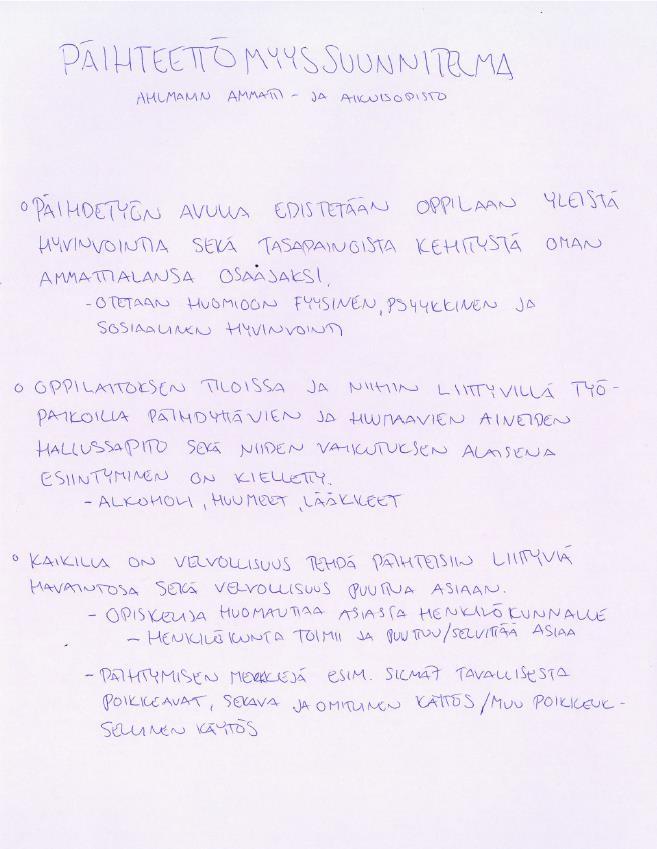 PÄIHTEETTÖMYYSSUUNNITELMA
AHLMANIN AMMATTI- JA AIKUISOPISTO
○ PÄIHDETYÖN AVULLA EDISTETÄÄN OPPILAAN YLEISTÄ
HYVINVOINTIA SEKÄ TASAPAINOISTA KEHITYSTÄ OMAN
AMMATTIALANSA OSAAJAKSI.
- OTETAAN HUOMIOON FYYSINEN, PSYYKKINEN JA
SOSIAALINEN HYVINVOINTI
○ OPPILAITOKSEN TILOISSA JA NIIHIN LIITTYVILLÄ TYÖ-
PAIKOILLA PÄIHDYTTÄVIEN JA HUUMAAVIEN AINEIDEN
HALLUSSAPITO SEKÄ NIIDEN VAIKUTUKSEN ALAISENA
ESIINTYMINEN ON KIELLETTY.
- ALKOHOLI, HUUMEET, LÄÄKKEET
○ KAIKILLA ON VELVOLLISUUS TEHDÄ PÄIHTEISIIN LIITTYVIÄ
HAVAINTOSA SEKÄ VELVOLLISUUS PUUTTUA ASIAAN.
- OPISKELIJA HUOMAUTTAA ASIASTA HENKILÖKUNNALLE
- HENKILÖKUNTA TOIMII JA PUUTTUU/SELVITTÄÄ ASIAA
- PÄIHTYMISEN MERKKEJÄ ESIM. SILMÄT TAVALLISESTA
POIKKEAVAT, SEKAVA JA OMITUINEN KÄYTÖS/MUU POIKKEUK-
SELLINEN KÄYTÖS